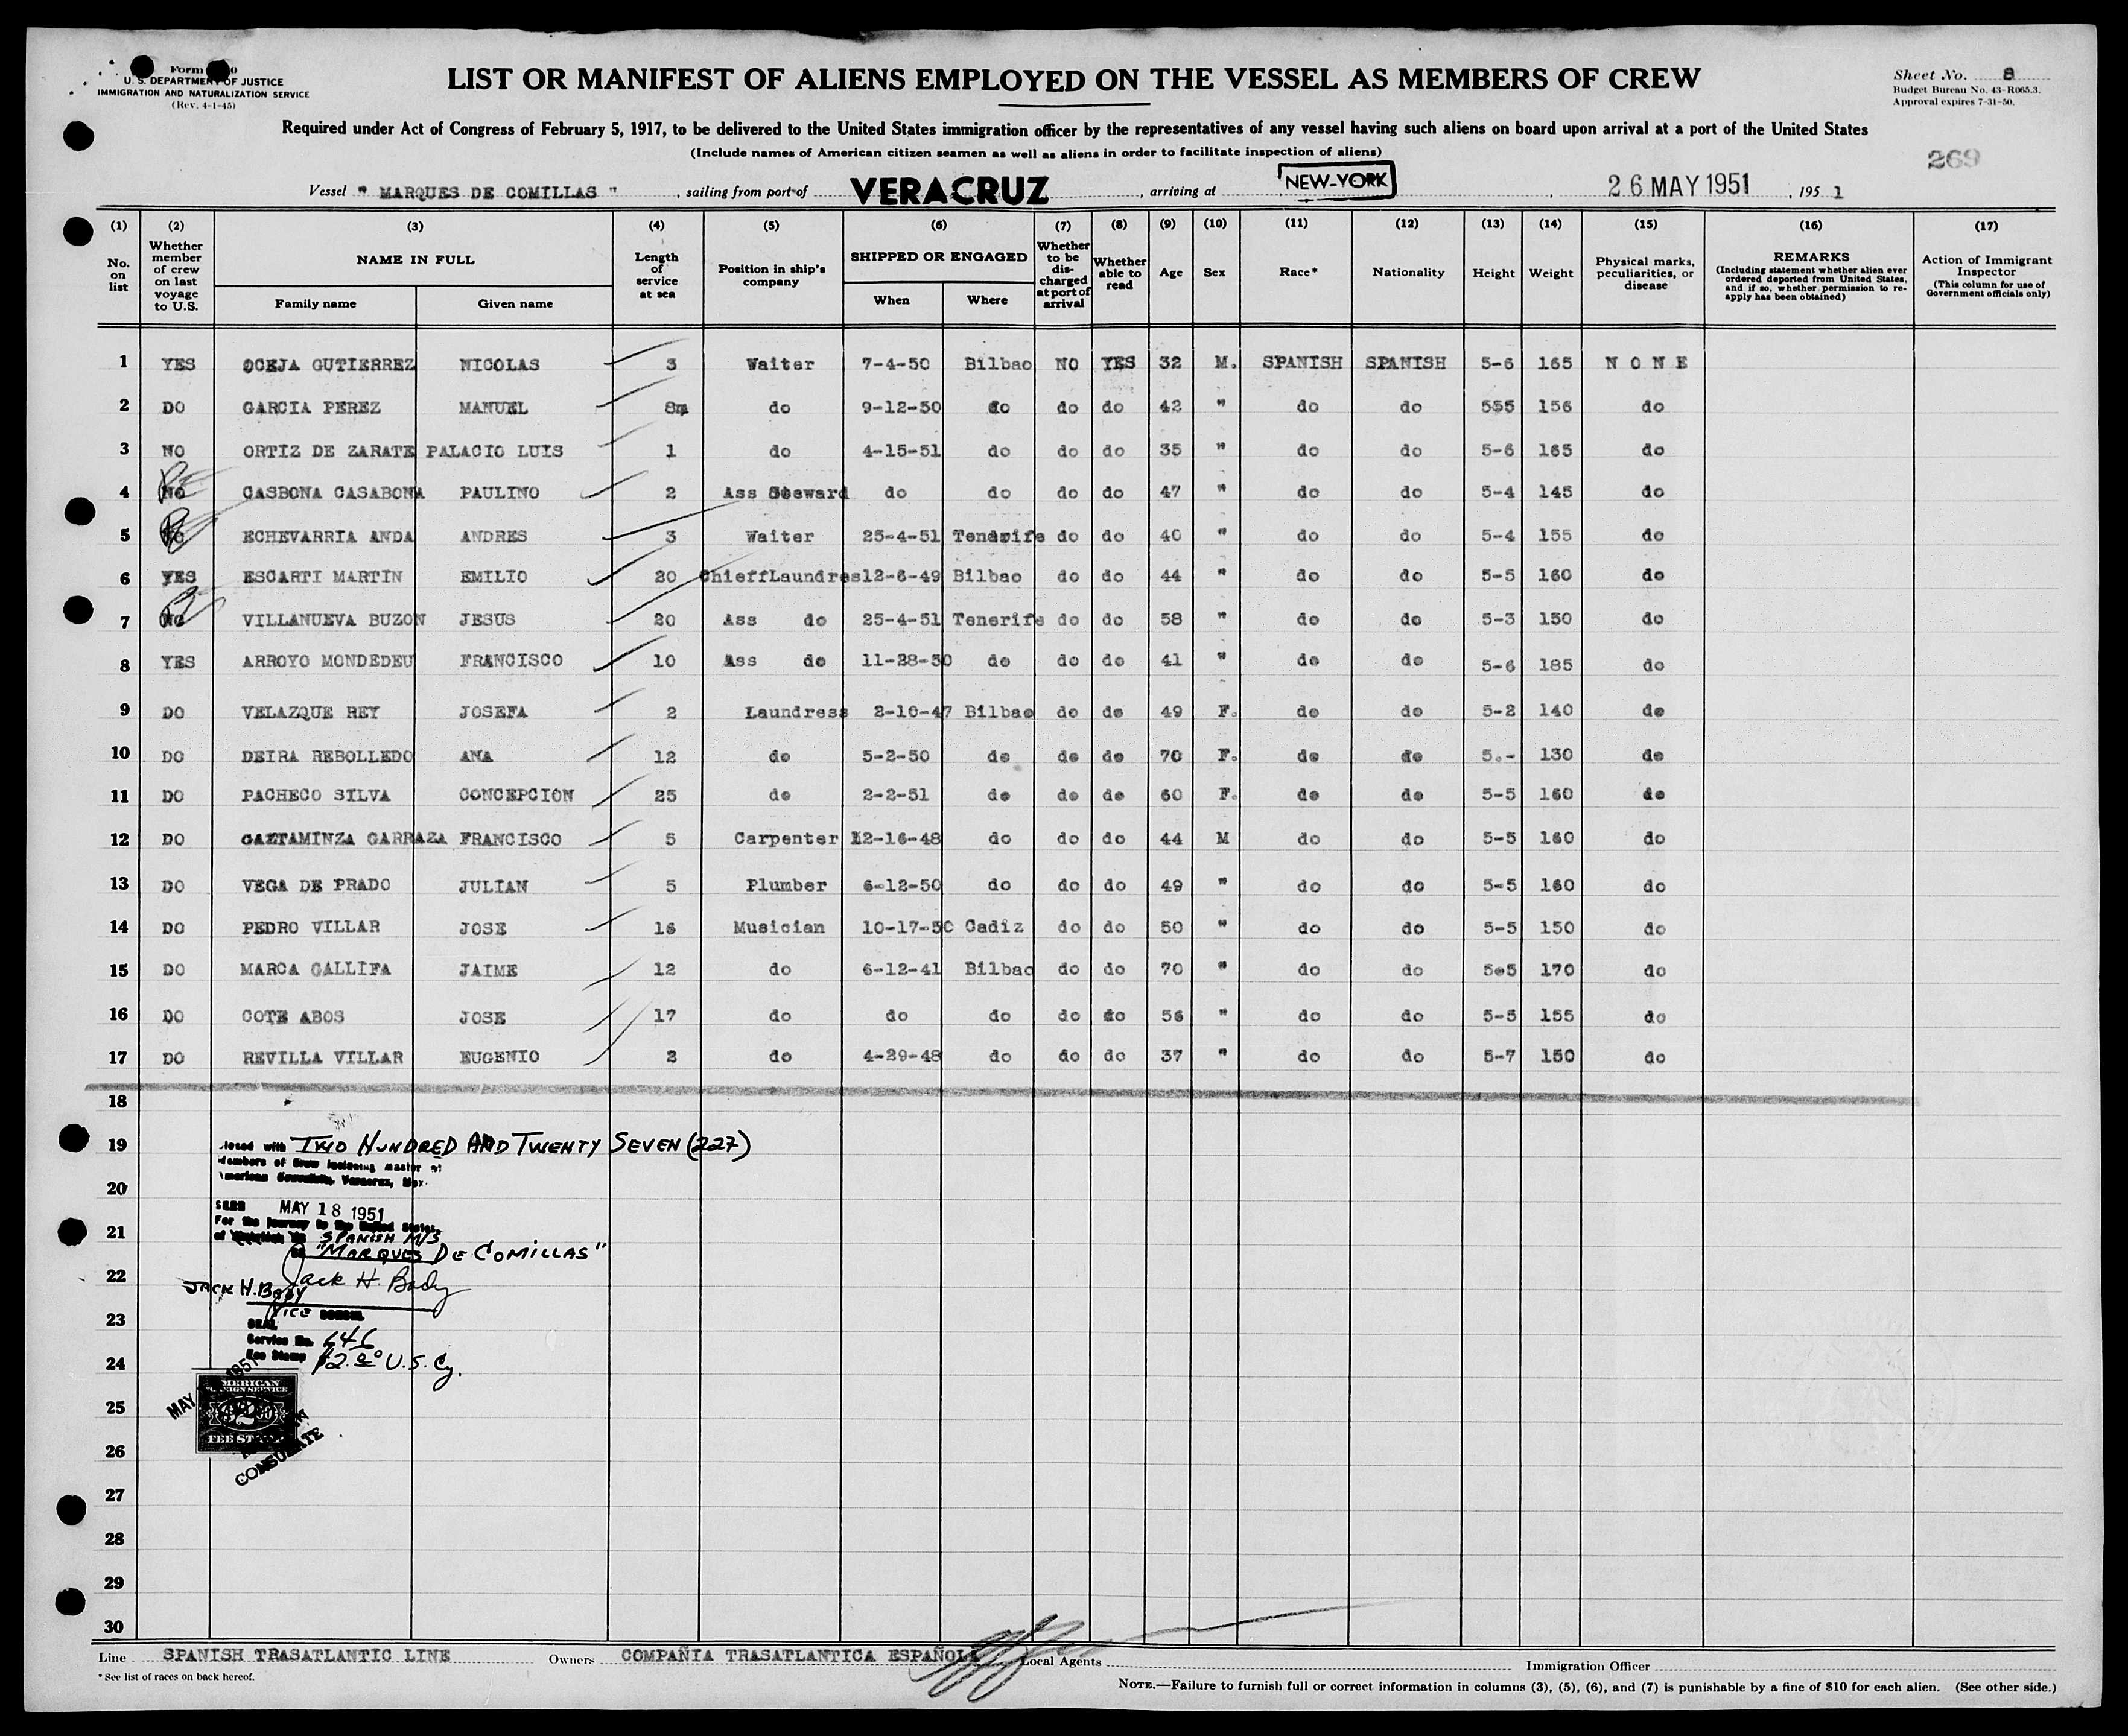 Form
U. S. DEPARTMENT OF JUSTICE
IMMIGRATION AND NATURALIZATION SERVICE
(Rev. 4-1-45)
LIST OR MANIFEST OF ALIENS EMPLOYED ON THE VESSEL AS MEMBERS OF CREW
Sheet No. 8
Budget Bureau No. 43-R065.3.
Approval expires 7-31-50.
Required under Act of Congress of February 5, 1917, to be delivered to the United States immigration officer by the representatives of any vessel having such aliens on board upon arrival at a port of the United States
(Include names of American citizen seamen as well as aliens in order to facilitate inspection of aliens)
269
Vessel " MARQUES DE COMILLAS " , sailing from port of VERACRUZ , arriving at NEW-YORK , 26 MAY 1951 , 195 1
(1) No. on list
(2) Whether member of crew on last voyage to U.S.
(3) NAME IN FULL Family name Given name
(4) Length of service at sea
(5) Position in ship's company
(6) SHIPPED OR ENGAGED When Where
(7) Whether to be discharged at port of arrival
(8) Whether able to read
(9) Age
(10) Sex
(11) Race*
(12) Nationality
(13) Height
(14) Weight
(15) Physical marks, peculiarities, or disease
(16) REMARKS (Including statement whether alien ever ordered deported from United States, and if so, whether permission to re-apply has been obtained)
(17) Action of Immigrant Inspector (This column for use of Government officials only)
1 YES OCEJA GUTIERREZ NICOLAS 3 Waiter 7-4-50 Bilbao NO YES 32 M. SPANISH SPANISH 5-6 165 N O N E
2 DO GARCIA PEREZ MANUEL 8m do 9-12-50 do do do 42 " do do 555 156 do
3 NO ORTIZ DE ZARATE PALACIO LUIS 1 do 4-15-51 do do do 35 " do do 5-6 165 do
4 No CASBONA CASABONA PAULINO 2 Ass Steward do do do do 47 " do do 5-4 145 do
5 ECHEVARRIA ANDA ANDRES 3 Waiter 25-4-51 Tenerife do do 40 " do do 5-4 155 do
6 YES ESCARTI MARTIN EMILIO 20 ChieffLaundres 12-6-49 Bilbao do do 44 " do do 5-5 160 do
7 No VILLANUEVA BUZON JESUS 20 Ass do 25-4-51 Tenerife do do 58 " do do 5-3 150 do
8 YES ARROYO MONDEDEU FRANCISCO 10 Ass do 11-28-50 do do do 41 " do do 5-6 185 do
9 DO VELAZQUE REY JOSEFA 2 Laundress 2-10-47 Bilbao do do 49 F. do do 5-2 140 do
10 DO DEIRA REBOLLEDO ANA 12 do 5-2-50 do do do 70 F. do do 5.- 130 do
11 DO PACHECO SILVA CONCEPCION 25 do 2-2-51 do do do 60 F. do do 5-5 160 do
12 DO GAZTAMINZA GARRAZA FRANCISCO 5 Carpenter 12-16-48 do do do 44 M do do 5-5 160 do
13 DO VEGA DE PRADO JULIAN 5 Plumber 6-12-50 do do do 49 " do do 5-5 160 do
14 DO PEDRO VILLAR JOSE 16 Musician 10-17-50 Cadiz do do 50 " do do 5-5 150 do
15 DO MARCA GALLIFA JAIME 12 do 6-12-41 Bilbao do do 70 " do do 5-5 170 do
16 DO COTE ABOS JOSE 17 do do do do do 56 " do do 5-5 155 do
17 DO REVILLA VILLAR EUGENIO 2 do 4-29-48 do do do 37 " do do 5-7 150 do
18
19 closed with TWO HUNDRED AND TWENTY SEVEN (227)
Members of Crew including master at
American Consulate, Veracruz, Mex.
20
SEEN MAY 18 1951
For the journey to the United States,
21
of SPANISH M/S
"MARQUES DE COMILLAS"
22
Jack H. Bady
JACK H. BADY
VICE CONSUL
23
SEAL
Service No. 646
24
Fee Stamp $2.00 U.S. Cy.
AMERICAN
FOREIGN SERVICE
25
$2.00
FEE STAMP
MAY 1951
CONSULATE
26
27
28
29
30
Line SPANISH TRASATLANTIC LINE Owners COMPAÑIA TRASATLANTICA ESPAÑOLA Local Agents Immigration Officer
* See list of races on back hereof.
NOTE.—Failure to furnish full or correct information in columns (3), (5), (6), and (7) is punishable by a fine of $10 for each alien. (See other side.)